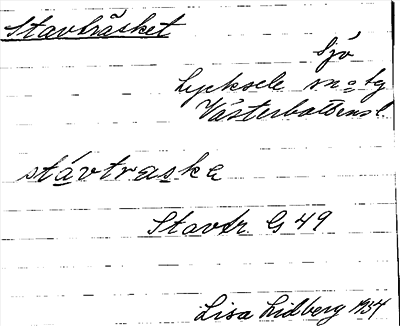 Stavträsket
Sjö
Lycksele sn o tg
Västerbottens l.
stávtraske
Stavtr. G 49
Lisa Lidberg 1934